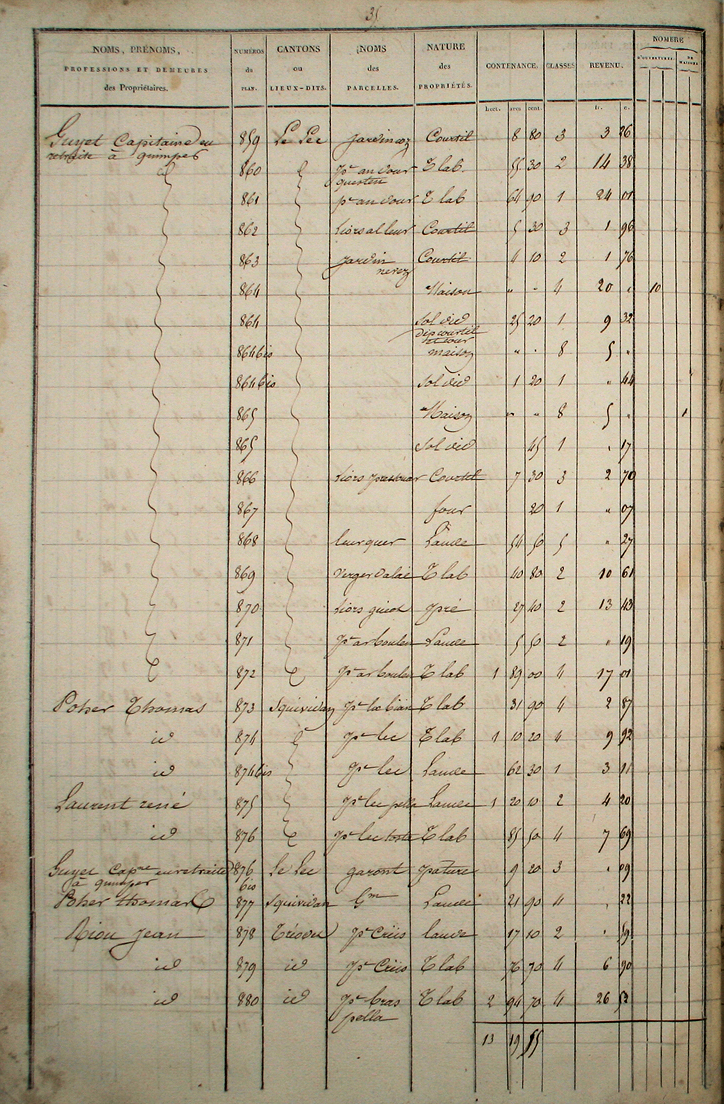 35
NOMS, PRÉNOMS, PROFESSIONS ET DEMEURES des Propriétaires. NUMÉROS du PLAN. CANTONS ou LIEUX-DITS. NOMS des PARCELLES. NATURE des PROPRIÉTÉS. CONTENANCE. CLASSES. REVENU. NOMBRE D'OUVERTURES. DE MAISONS.
hect. ares cent. fr. c.
Guyet Capitaine en 859 Le Lec jardin coz Courtil 8 80 3 3 26
retraite à quimper
id 860 id pr an dour T lab 55 30 2 14 38
861 pr an dour T lab 64 90 1 24 01
862 liors al leur Courtil 5 30 3 1 96
863 jardin Courtil 4 10 2 1 76
nevez
864 Maison " " 4 20 " 10
864 sol vid 25 20 1 9 32
dep courtil
et cour
864 bis maison " " 8 5 "
864 bis sol vid 1 20 1 " 44
865 Maison " " 8 5 " 1
865 sol vid 45 1 " 17
866 liors Courtil 7 30 3 2 70
867 four 20 1 " 07
868 leurquer Lande 54 50 5 " 27
869 verger dalae T lab 40 80 2 10 61
870 liors guiot pré 27 40 2 13 43
871 pr ar boulou Lande 5 50 2 " 19
872 pr ar boulou T lab 1 89 00 4 17 01
Poher Thomas 873 Squividan T lab 31 90 4 2 87
id 874 id pr lec T lab 1 10 20 4 9 92
id 874 bis pr lec Lande 62 30 1 3 11
Laurent rené 875 pr lec pella Lande 1 20 10 2 4 20
id 876 pr lec tosta T lab 85 50 4 7 69
Guyet Capne en retraite 876 Le Lec garont pature 9 20 3 " 09
à quimper bis
Poher thomas 877 Squividan Gm Lande 21 90 4 " 22
Riou Jean 878 Tréodu pr Créis lande 17 10 2 " 59
id 879 id pr Créis T lab 76 70 4 6 90
id 880 id pr bras T lab 2 94 70 4 26 52
pella
13 19 55